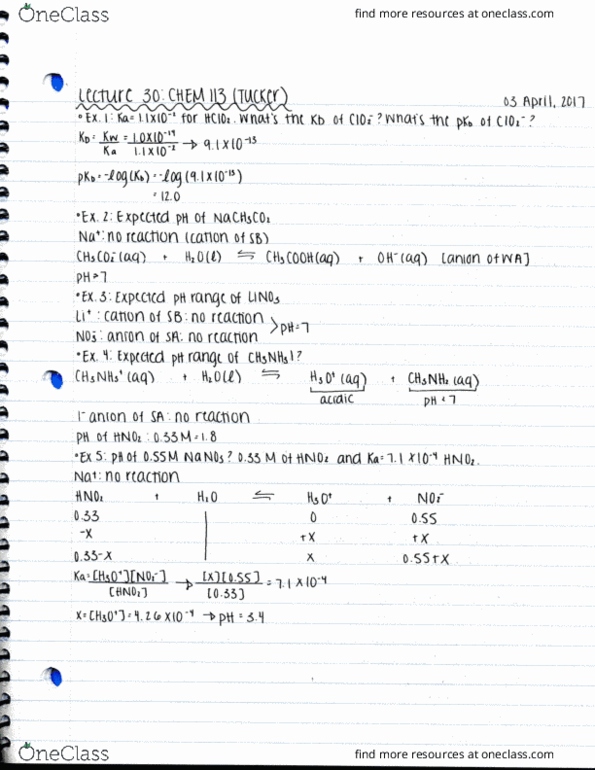 OneClass find more resources at oneclass.com
Lecture 30: CHEM 113 (Tucker)
03 April, 2017
• Ex. 1: Ka = 1.1x10⁻² for HClO₂. What's the Kb of ClO₂⁻? What's the pKb of ClO₂⁻?
Kb = Kw/Ka = 1.0x10⁻¹⁴/1.1x10⁻² → 9.1x10⁻¹³
pKb = -log(Kb) = -log(9.1x10⁻¹³)
= 12.0
• Ex. 2: Expected pH of NaCH₃CO₂
Na⁺: no reaction (cation of SB)
CH₃CO₂⁻(aq) + H₂O(l) ⇌ CH₃COOH(aq) + OH⁻(aq) [anion of WA]
pH > 7
• Ex. 3: Expected pH range of LiNO₃
Li⁺: cation of SB: no reaction
NO₃⁻: anion of SA: no reaction > pH = 7
• Ex. 4: Expected pH range of CH₃NH₃I?
CH₃NH₃⁺(aq) + H₂O(l) ⇌ H₃O⁺(aq) + CH₃NH₂(aq)
acidic pH < 7
I⁻ anion of SA: no reaction
pH of HNO₂: 0.33M = 1.8
• Ex 5: pH of 0.55M NaNO₃? 0.33 M of HNO₂ and Ka = 7.1x10⁻⁴ HNO₂.
Na⁺: no reaction
HNO₂ + H₂O ⇌ H₃O⁺ + NO₂⁻
0.33 0 0.55
-x +x +x
0.33-x x 0.55+x
Ka = [H₃O⁺][NO₂⁻]/[HNO₂] → [x][0.55]/[0.33] = 7.1x10⁻⁴
x = [H₃O⁺] = 4.26x10⁻⁴ → pH = 3.4
OneClass find more resources at oneclass.com